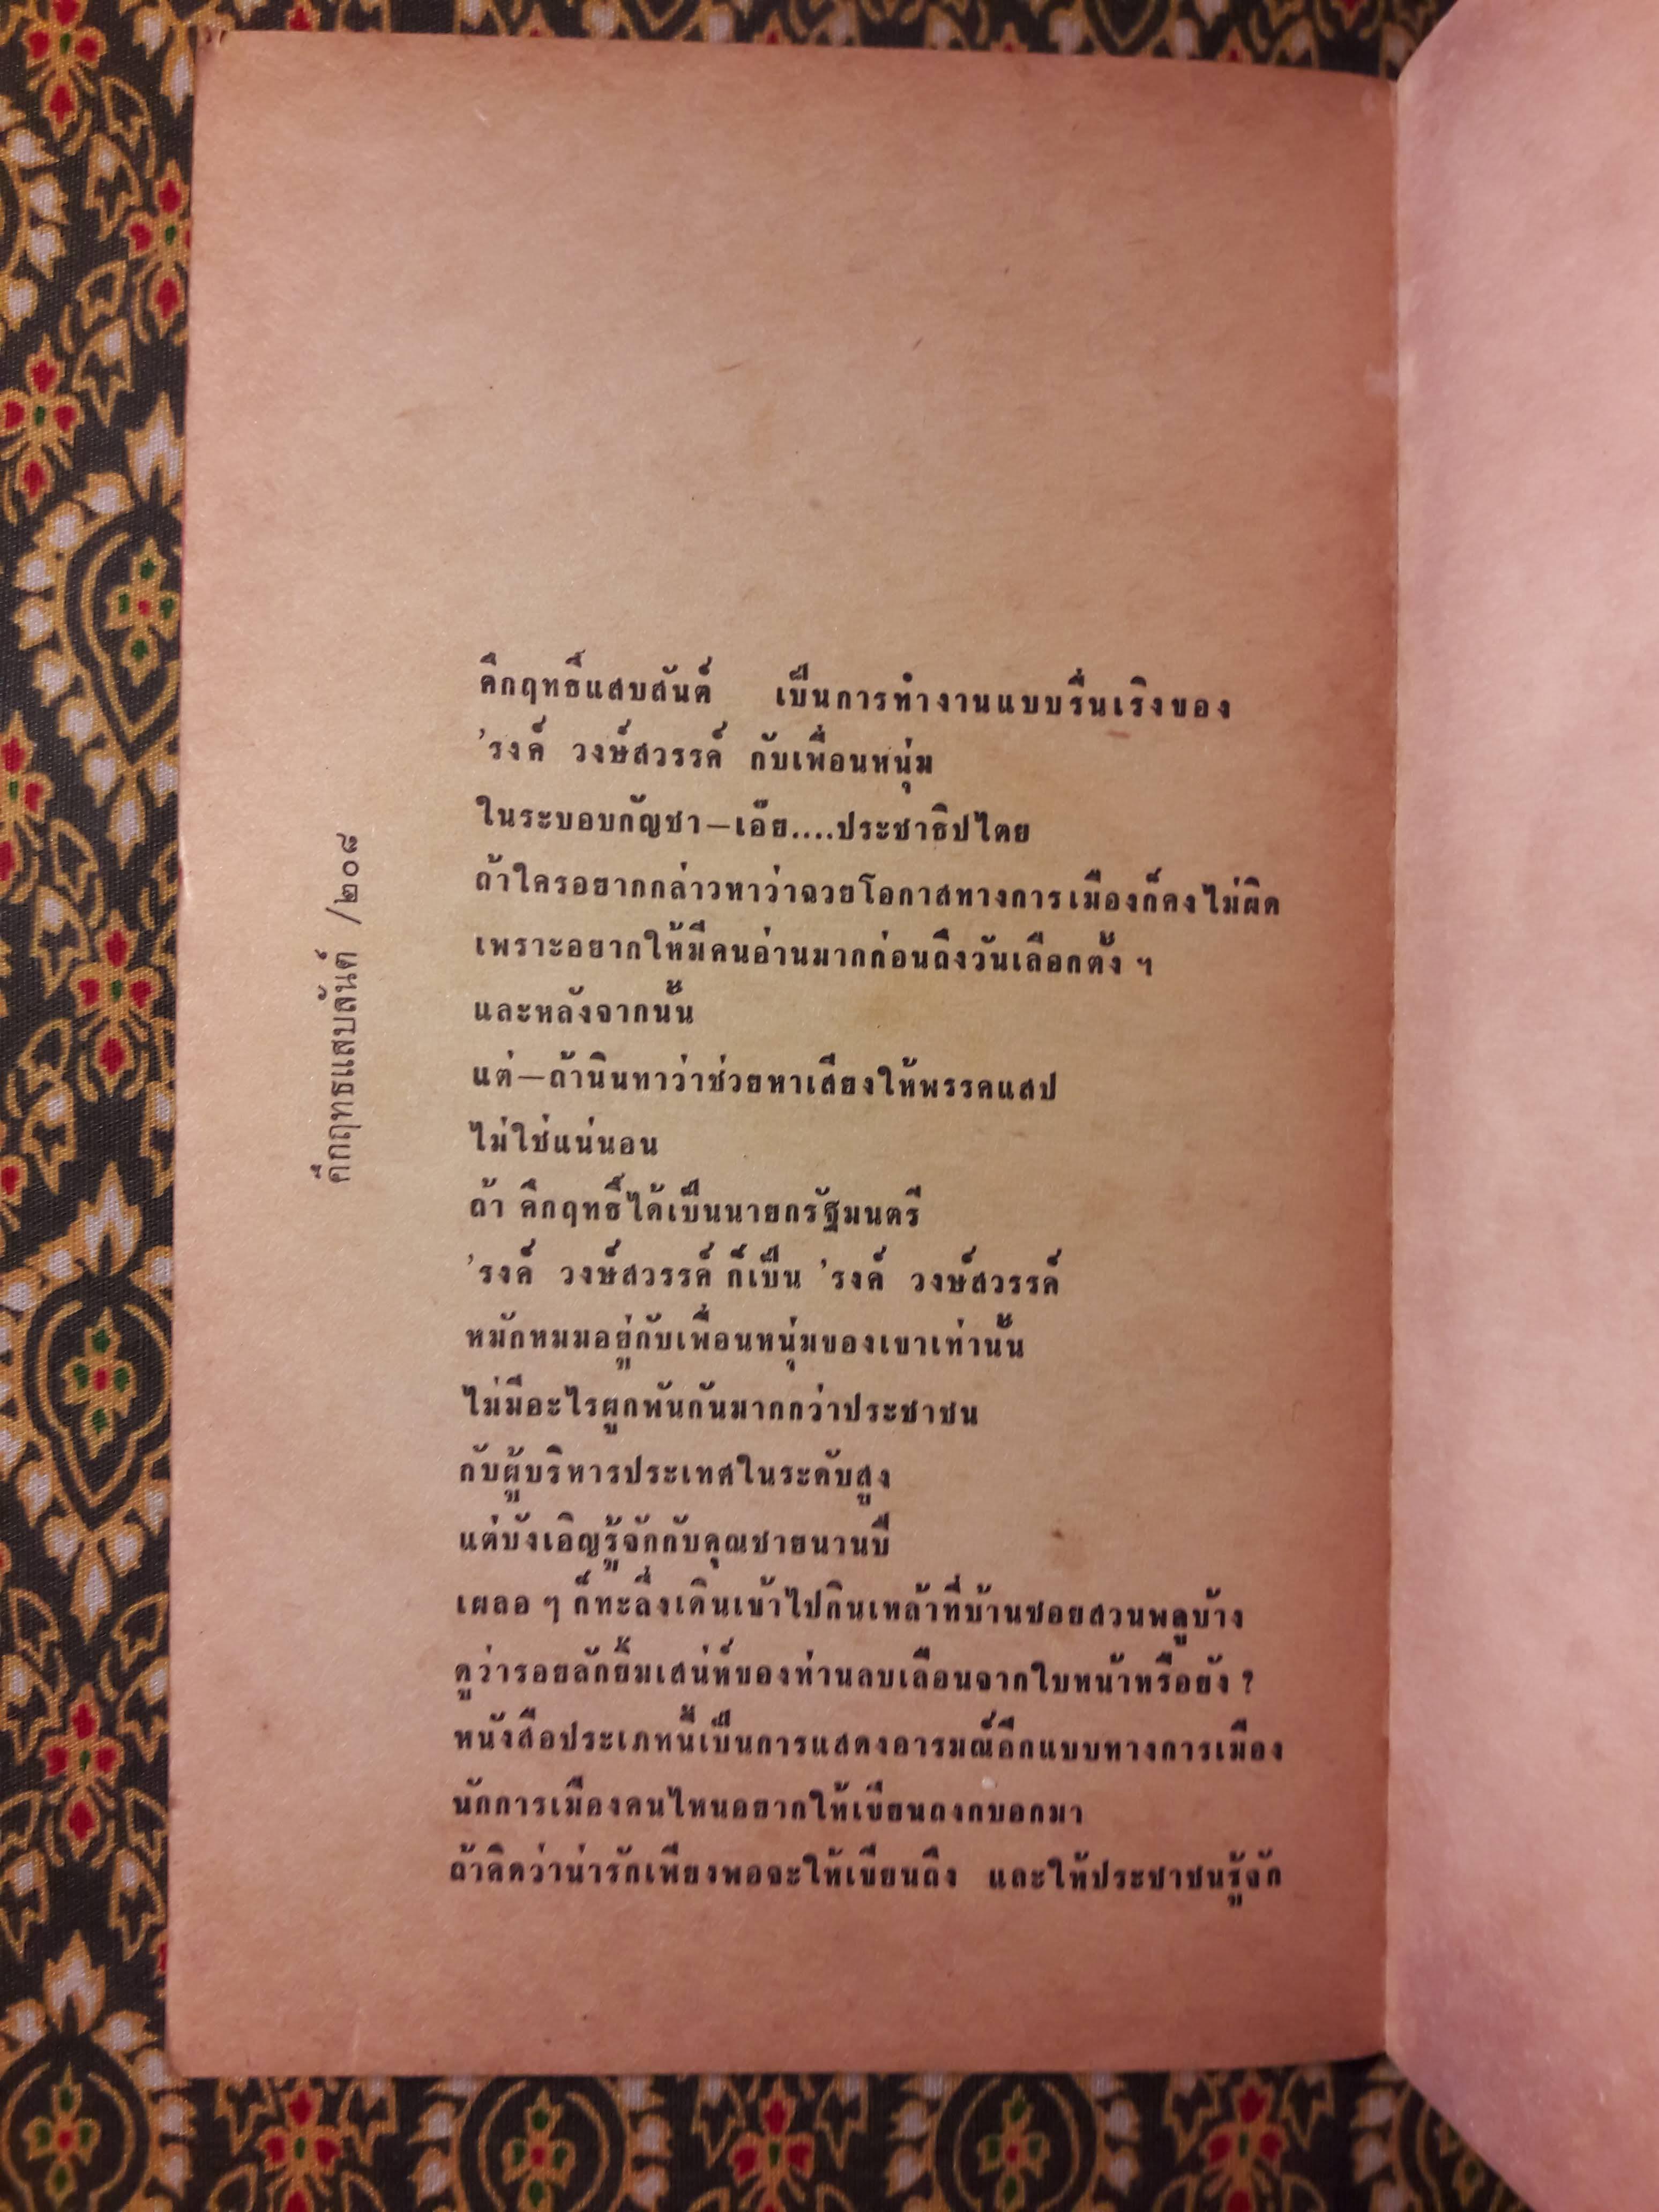 คึกฤทธิ์แสบสันต์ เป็นการทำงานแบบรื่นเริงของ
'รงค์ วงษ์สวรรค์ กับเพื่อนหนุ่ม
ในระบอบกัญชา—เอ๊ย....ประชาธิปไตย
ถ้าใครอยากกล่าวหาว่าฉวยโอกาสทางการเมืองก็คงไม่ผิด
เพราะอยากให้มีคนอ่านมากก่อนถึงวันเลือกตั้ง ฯ
และหลังจากนั้น
แต่—ถ้านินทาว่าช่วยหาเสียงให้พรรคแสป
ไม่ใช่แน่นอน
ถ้า คึกฤทธิ์ได้เป็นนายกรัฐมนตรี
'รงค์ วงษ์สวรรค์ ก็เป็น 'รงค์ วงษ์สวรรค์
หมักหมมอยู่กับเพื่อนหนุ่มของเขาเท่านั้น
ไม่มีอะไรผูกพันกันมากกว่าประชาชน
กับผู้บริหารประเทศในระดับสูง
แต่บังเอิญรู้จักกับคุณชายนานปี
เผลอ ๆ ก็ทะลึ่งเดินเข้าไปกินเหล้าที่บ้านซอยสวนพลูบ้าง
ดูว่ารอยลักยิ้มเสน่ห์ของท่านลบเลือนจากใบหน้าหรือยัง ?
หนังสือประเภทนี้เป็นการแสดงอารมณ์อีกแบบทางการเมือง
นักการเมืองคนไหนอยากให้เขียนถึงก็บอกมา
ถ้าคิดว่าน่ารักเพียงพอจะให้เขียนถึง และให้ประชาชนรู้จัก
คึกฤทธแสบสันต์ /๒๐๘